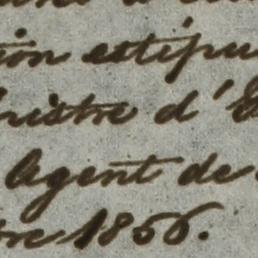 ion estipu
nistre d'E
Agent de
re 1866.